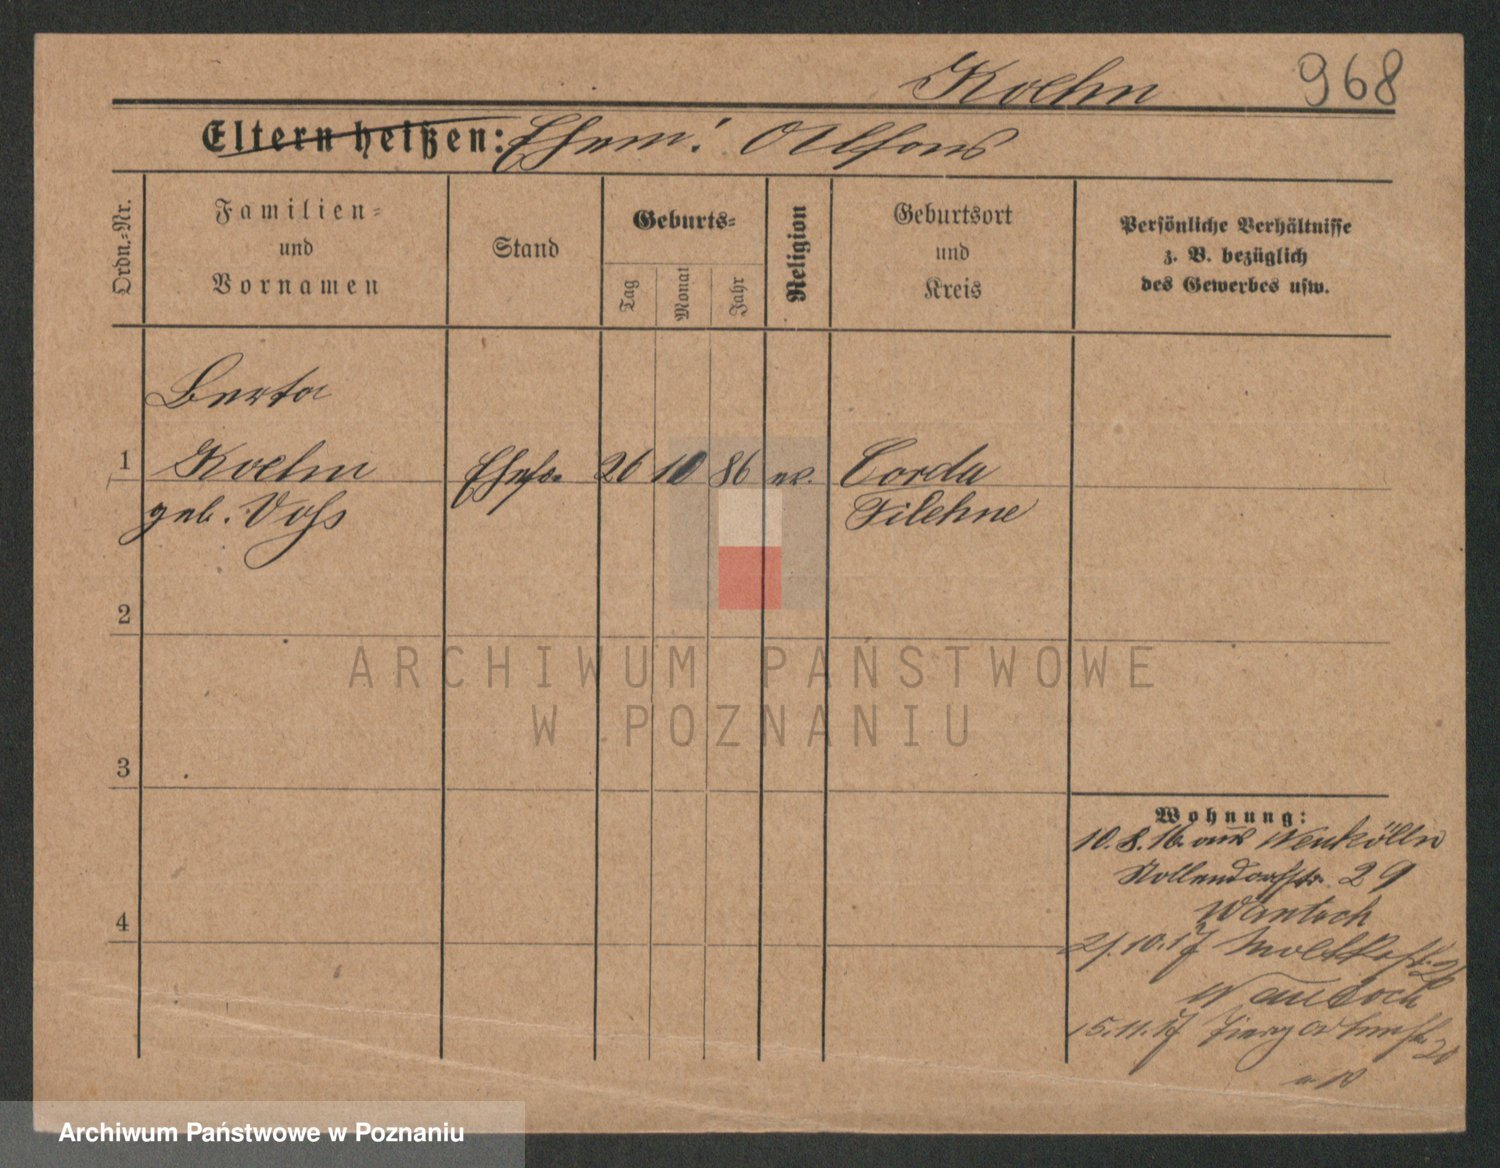 Koehn 968
Eltern heißen: Ehem: Alfons
Ordn.-Nr.
Familien-
und
Vornamen
Stand
Geburts-
Tag
Monat
Jahr
Religion
Geburtsort
und
Kreis
Persönliche Verhältnisse
z. B. bezüglich
des Gewerbes usw.
Berta
1 Koehn Ehefr. 26 10 86 ev. Corda
geb. Voss Filehne
2
ARCHIWUM PAŃSTWOWE
W POZNANIU
3
Wohnung:
10.8.16. aus Neukölln
Nollendorfstr. 29
4
21.10.17 Moltkestr.
15.11.17 Tiergartenstr. 20
Archiwum Państwowe w Poznaniu